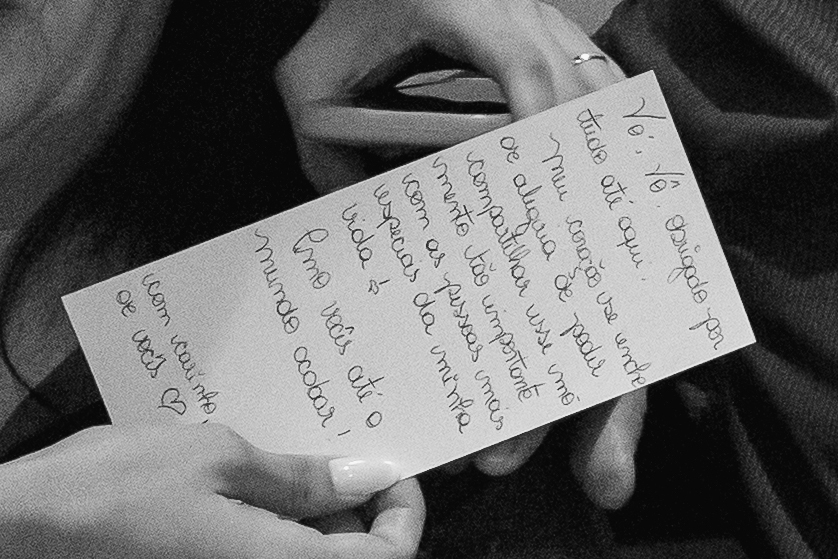 Vó, Vô, obrigado por
tudo até aqui.
Meu coração se enche
de alegria de poder
compartilhar esse mo
mento tão importante
com as pessoas mais
especias da minha
vida
Amo vocês até o
mundo acabar!
com carinho,
de vocês ♡